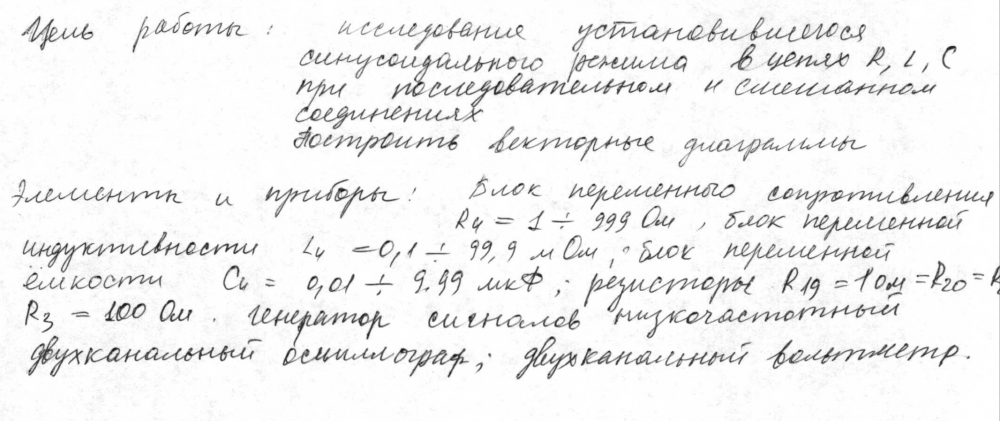 Цель работы: исследование установившегося
синусоидального режима в цепях R, L, C
при последовательном и смешанном
соединениях
Построить векторные диаграммы
Элементы и приборы: Блок переменного сопротивления
R4 = 1 ÷ 999 Ом, блок переменной
индуктивности L4 = 0,1 ÷ 99,9 мОм; блок переменной
ёмкости C4 = 0,01 ÷ 9.99 мкФ; резисторы R19 = 1 Ом = R20 = R
R3 = 100 Ом. генератор сигналов низкочастотный
двухканальный осциллограф; двухканальный вольтметр.